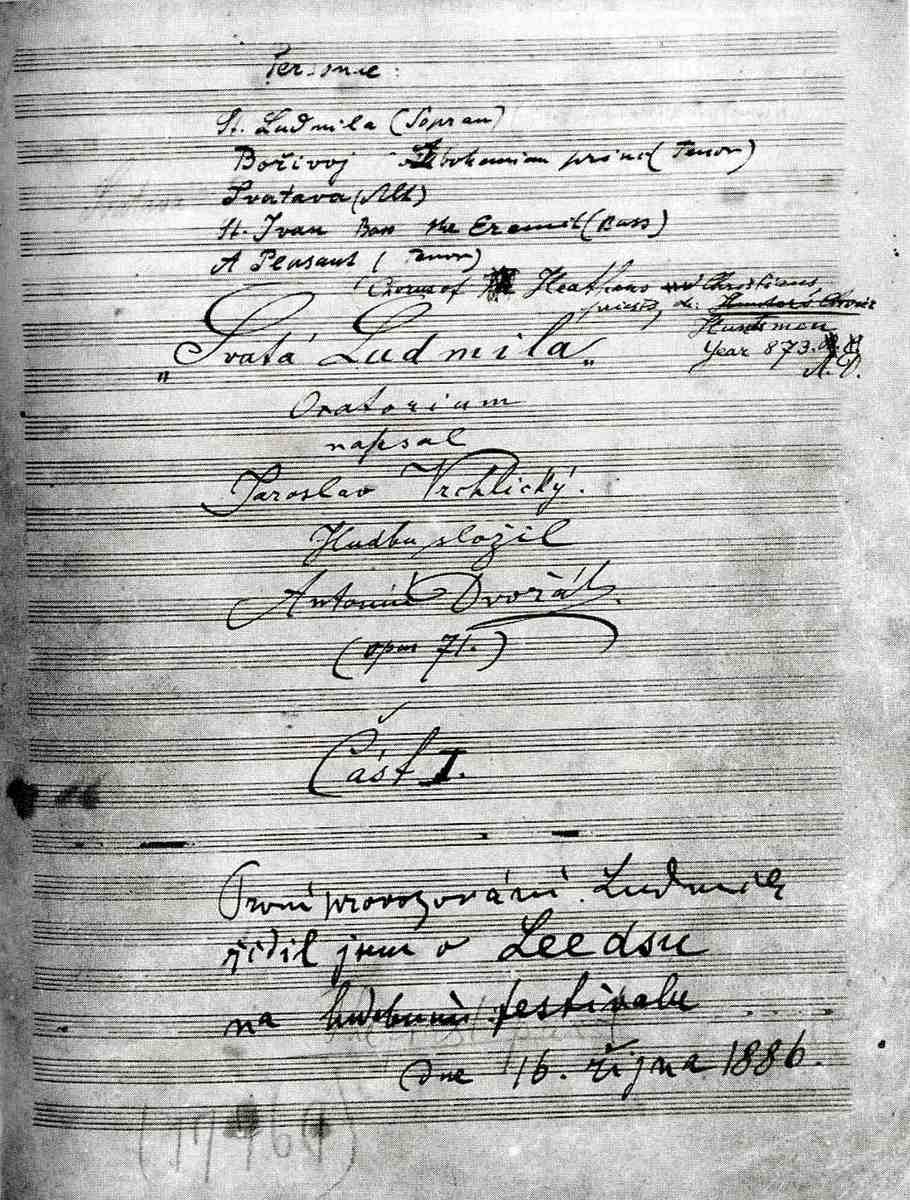 Personne:
St. Ludmila (Sopran)
Bořivoj bohemian prince (Tenor)
Svatava (Alt)
St. Ivan Bass the Eremit (Bass)
A Peasant (Tenor)
Chorus of Heathens and Christians,
priests,
Huntsmen
Year 873.
A. D.
„Svatá Ludmila„
Oratorium
napsal
Jaroslav Vrchlický.
Hudbu složil
Antonín Dvořák.
(opus 71.)
Část I.
První provozování Ludmily
řídil jsem v Leedsu
na hudebním festivalu
dne 16. října 1886.